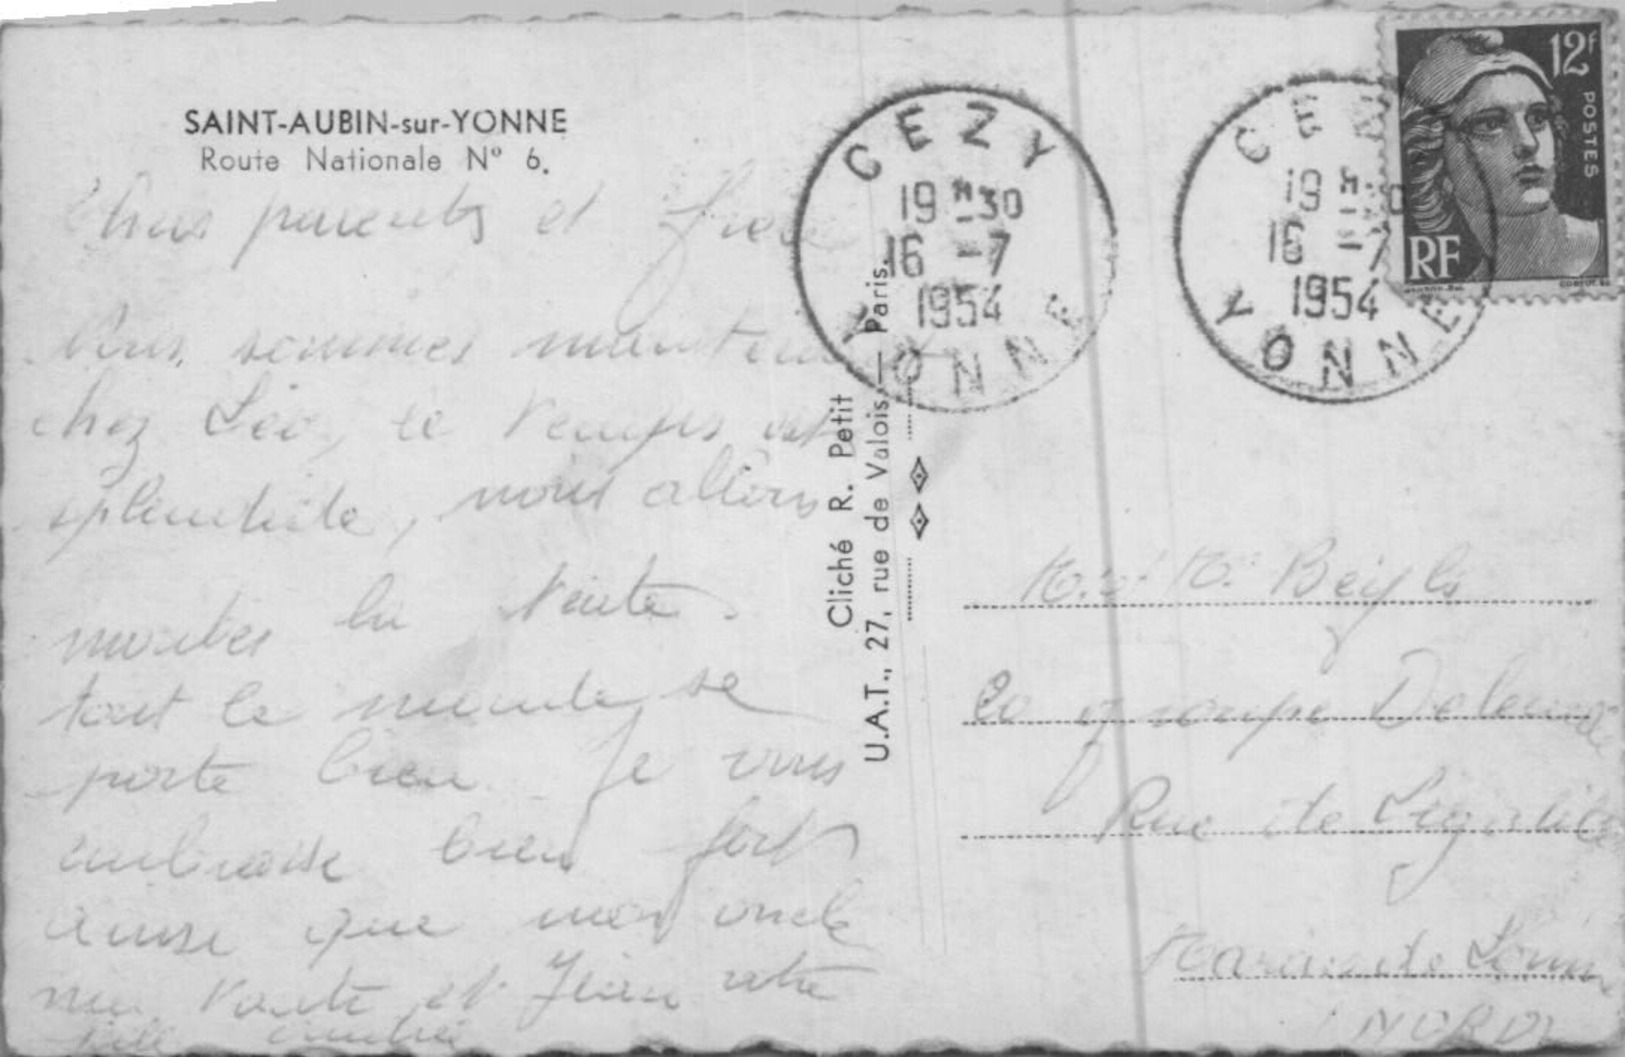 SAINT-AUBIN-sur-YONNE
Route Nationale Nº 6.
Chers parents et frère
Nous sommes maintenant
chez Léo, le temps est
splendide, nous allons
monter la tente.
tout le monde se
porte bien. Je vous
embrasse bien fort
ainsi que mon oncle
ma tante et Jean votre
fille
Cliché R. Petit
U.A.T., 27, rue de Valois, — Paris.
CEZY
19 H 30
16 -7
1954
YONNE
CE
19 H 30
16 -7
1954
YONNE
12F
POSTES
RF
M. et Mme
groupe
Rue de
(NORD)